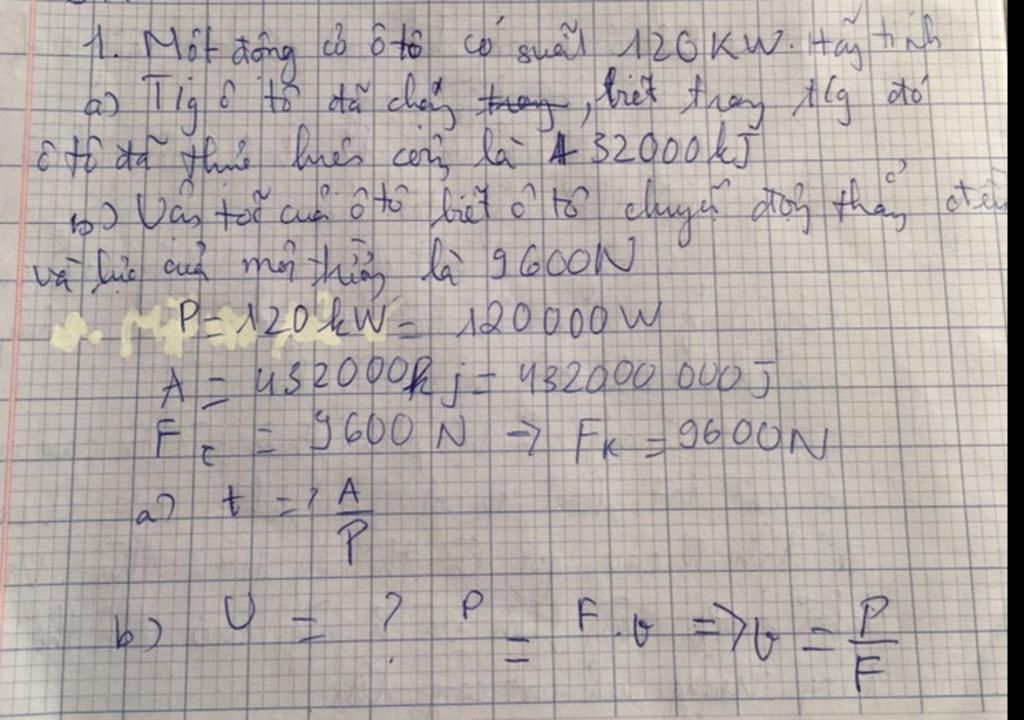 1. Một động cơ ô tô có suất 120 KW. Hãy tính
a) T/g ô tô đã chạy trong, biết trong t/g đó
ô tô đã thực hiện công là 432000kJ
b) Vận tốc của ô tô biết ô tô chuyển động thẳng đều
và lực cản môi trường là 9600N
P = 120 kW = 120000W
A = 432000kj = 432000 000J
F c = 9600 N → FK = 9600N
a) t = ? A/P
b) U = ? P = F.v => v = P/F